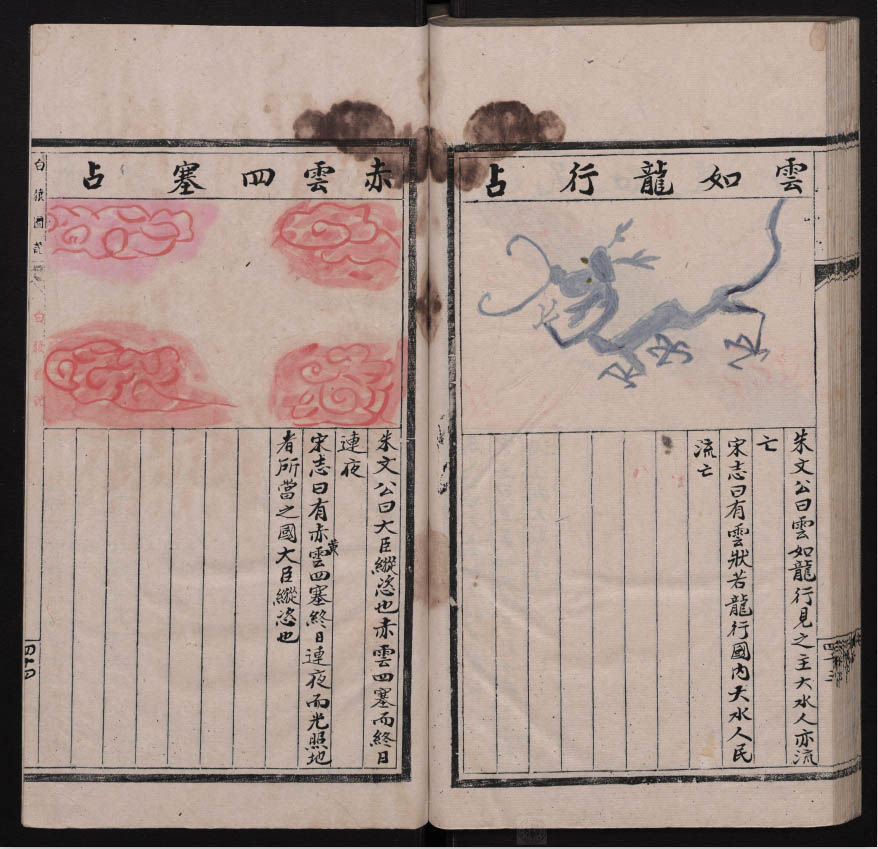 雲如龍行占
朱文公曰雲如龍行見之主大水人亦流
亡
宋志曰有雲狀若龍行國內大水人民
流亡
四十三
赤雲四塞占
朱文公曰大臣縱恣也赤雲四塞而終日
連夜
宋志曰有赤黃雲四塞終日連夜而光照地
者所當之國大臣縱恣也
白猿圖
四十四
白猿